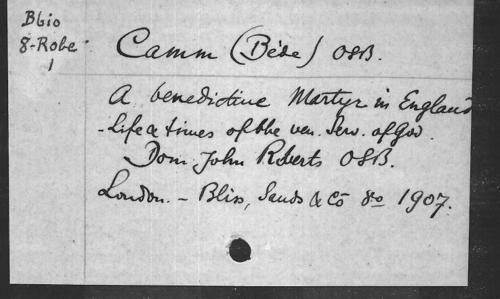 Bbio
8-Robe
1
Camm (Bède) OSB.
A benedictine Martyr in England
- Life & times of the ven. Serv. of God.
Dom John Roberts OSB.
London. - Bliss, Sands & Co 8o 1907.